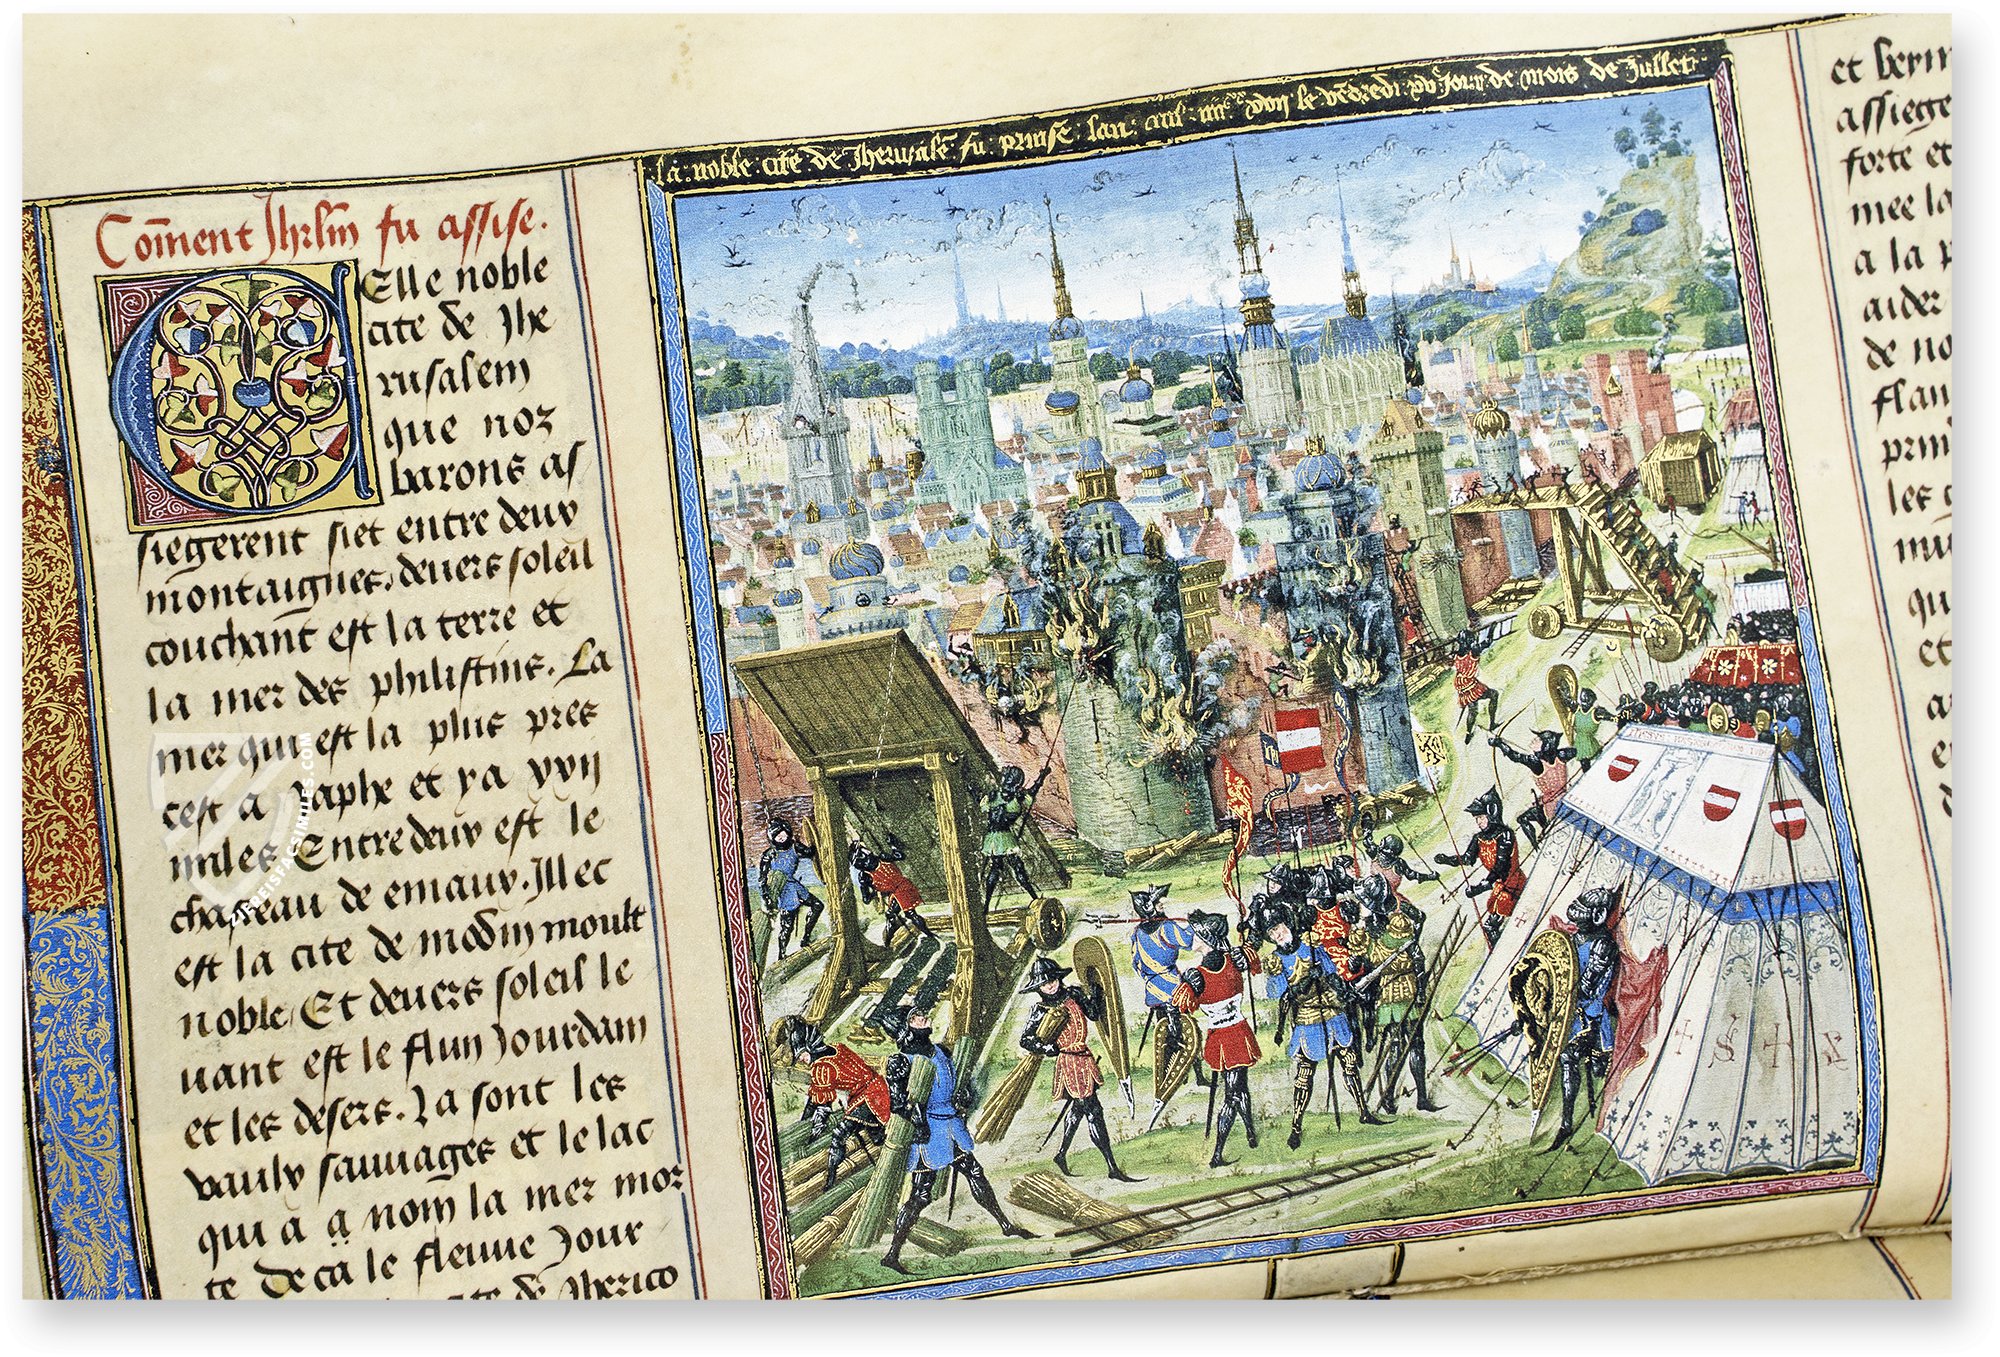 la noble cite de Jherusale͂ fu prinse lan mil iiii xx xvii le ve͂dredi xv jour de mois de Jullet
Co͂ment Jhrl͂m fu assise.
Celle noble
cite de Jhe
rusalem
que noz
barons as
siegerent siet entre deux
montaignes. devers soleil
couchant est la terre et
la mer des philistins. La
mer qui est la plus pres
cest a Japhe et ya xvij
miles Entredeux est le
chasteau de emaux. Illec
est la cite de modin moult
noble Et devers soleil le
vant est le flun Jourdain
et les desers. La sont les
vaulx sauvages et le lac
qui a a nom la mer mor
te deca le fleuve Jour
de Jherico
et
assiege
forte et
mee la
a la p
aider
de no
flan
prin
les
mu
qu
et
FACSIMILES.COM